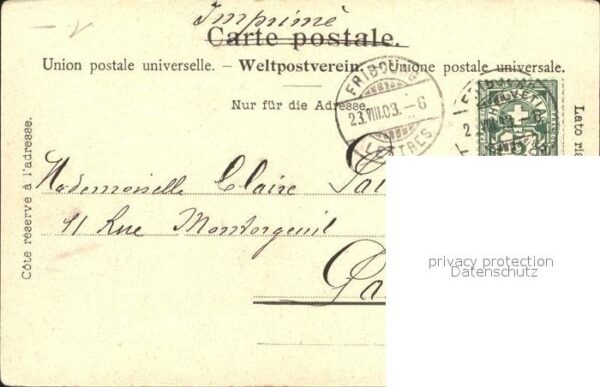 Imprimé
Carte postale.
Union postale universelle. – Weltpostverein. – Unione postale universale.
Nur für die Adresse.
FRIBOURG
23.VIII.03.–6
LETTRES
Côte réservé à l'adresse.
Lato ris
Mademoiselle Claire
11 Rue Montorgeuil
privacy protection
Datenschutz